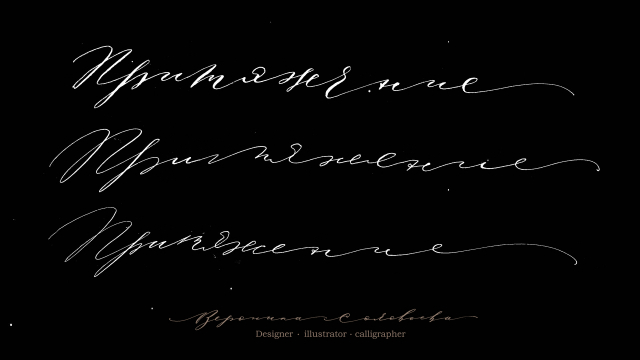 Притяжение
Притяжение
Притяжение
Вероника Соловьева
Designer · illustrator · calligrapher